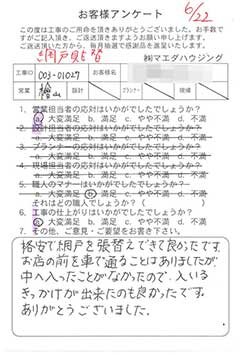 お客様アンケート
6/22
この度は工事のご用命を頂きありがとうございました。お手数で
すがご記入頂き、ご返送頂きますようお願い申し上げます。
ご返送頂いた方から、毎月抽選で感謝品を差し上げています。
網戸貼替
㈱マエダハウジング
工事ID 003-01027 お客様名
営業 桧山 設計 プランナー 現場
1、営業担当者の応対はいかがでしたでしょうか?
a. 大変満足 b. 満足 c. やや不満 d. 不満
2、設計担当者の応対はいかがでしたでしょうか?
a. 大変満足 b. 満足 c. やや不満 d. 不満
3、プランナーの応対はいかがでしたでしょうか?
a. 大変満足 b. 満足 c. やや不満 d. 不満
4、現場担当者の応対はいかがでしたでしょうか?
a. 大変満足 b. 満足 c. やや不満 d. 不満
5、職人のマナーはいかがでしたでしょうか?
a. 大変満足 b. 満足 c. やや不満 d. 不満
それはどの職人でしょう?( )
6、工事の仕上がりはいかがでしたでしょうか?
a. 大変満足 b. 満足 c. やや不満 d. 不満
7、その他、ご意見・ご要望をお書き下さい。
格安で網戸を張替えできて良かったです。
お店の前を車で通ることはありましたが
中へ入ったことがなかったので、入いる
きっかけが出来たのも良かったです。
ありがとうございました。